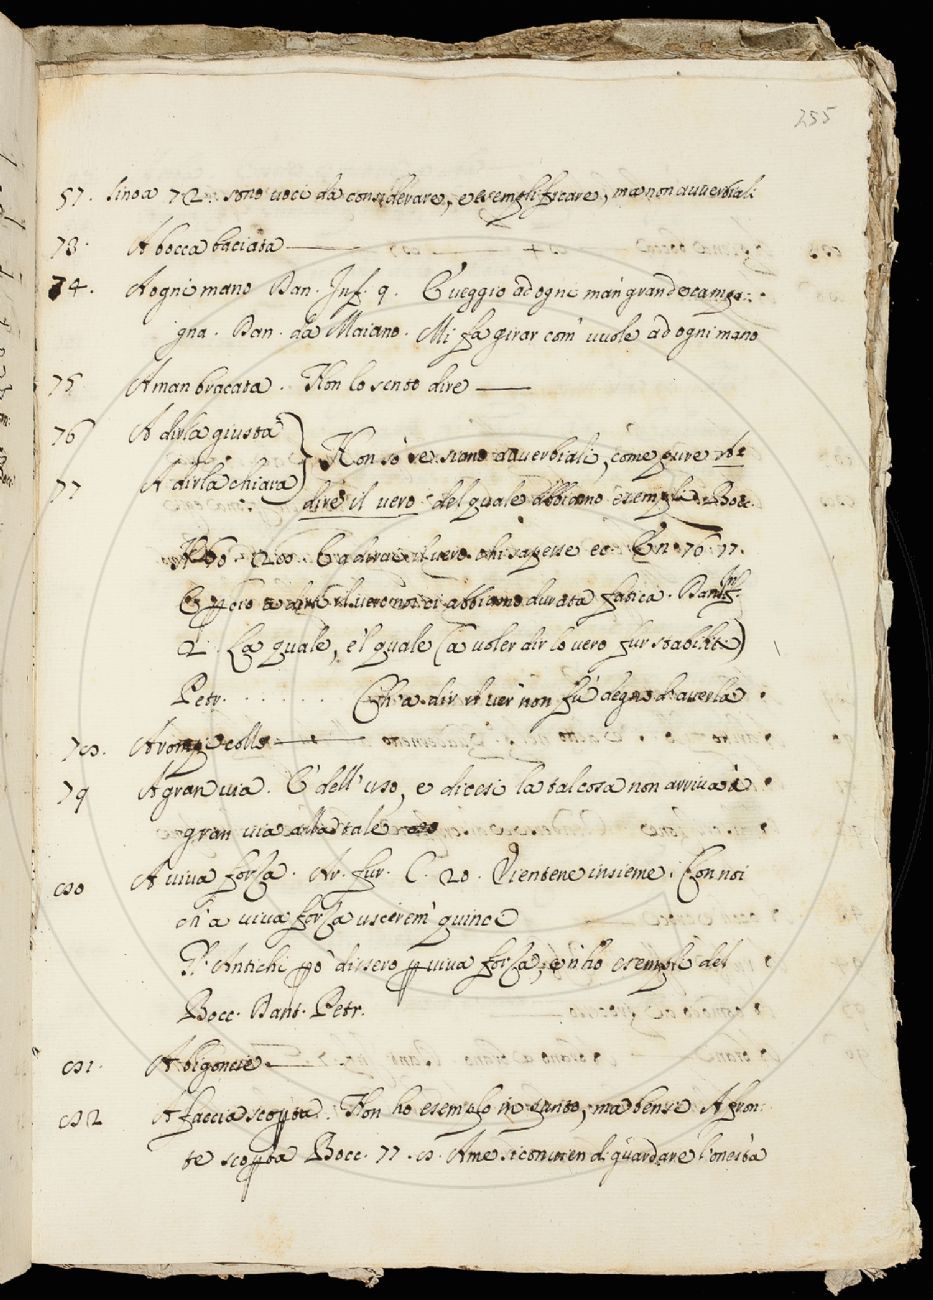 255
57. sino a 72. sono uoci da considerare, e esemplificare, ma non auuerbiali
73. A bocca baciata
74. A ogni mano Dan. Inf. 9. E ueggio ad ogni man grande campa:
gna. Dan. da Maiano. Mi fa girar com' vuole ad ogni mano
75 A man bracata. Non lo sento dire
76 A dirla giusta
77 A dirla chiara
Non sò se siano auuerbiali, come pure
dire il uero del quale abbiamo esempla. Bocc.
60. E a dirue il uero chi sapesse ec. En. 76. 77.
E ꝑciò a dirti il uero noi ci abbiamo durata fatica. Dant. Inf.
2. La quale, e 'l quale (a uoler dir lo uero fur stabilite)
Petr. . . . . . Ch' a dir il uer non fù degno d' auerla.
78. A rompicollo
79 A gran uia. E' dell' uso, e dicesi la tal cosa non arriua à
gran uia alla tale
80 A uiua forza. Ar. fur. C. 20. Vientene insieme. Con noi
ch' a uiua forza uscirem' quince
Gl' Antichi ꝑò dissero ꝑ uiua forza, e n' ho esemplo del
Bocc. Dant. Petr.
81. A bigonce
82 A faccia scoꝑta. Non ho esemplo in punto, ma bensì A fron:
te scoꝑta Bocc. 77. 8. A me si conuien di guardare l' onestà